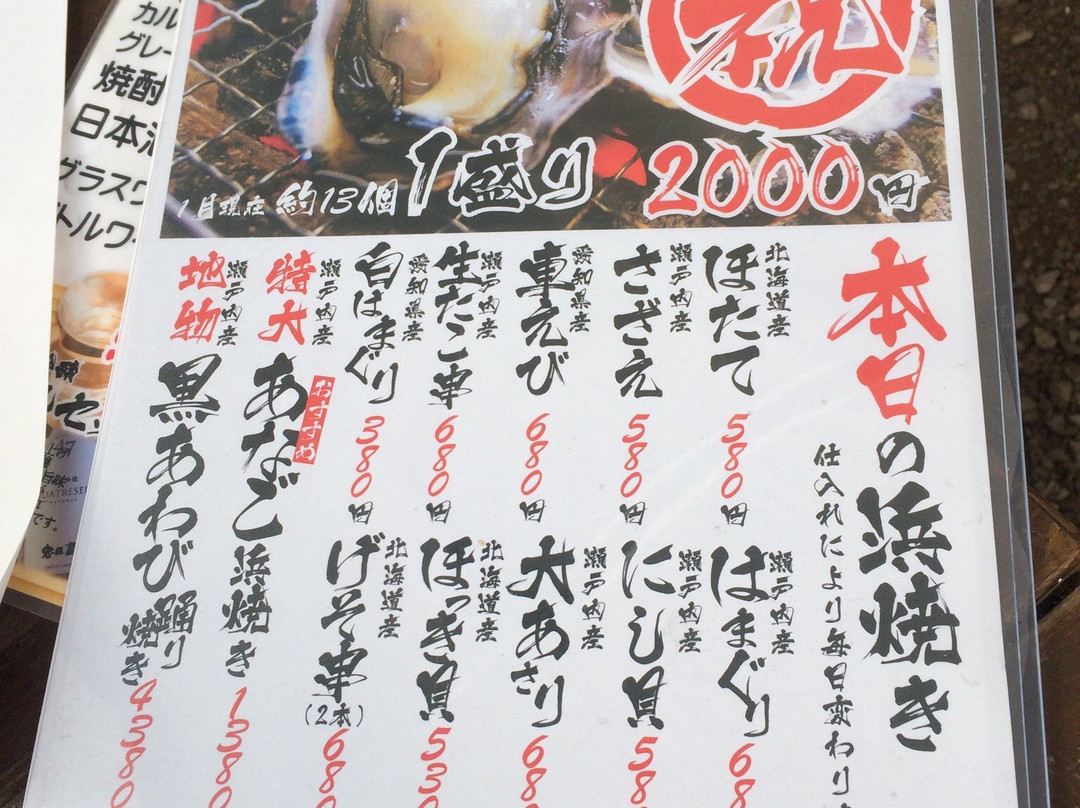 祝
1月現在 約13個 1盛り 2000円
本日の浜焼き
仕入れにより毎日変わり
北海道産
ほたて 580円
瀬戸内産
はまぐり 68
瀬戸内産
さざえ 580円
瀬戸内産
にし貝 58
愛知県産
車えび 680円
瀬戸内産
大あさり 68
瀬戸内産
生たこ串 680円
北海道産
ほっき貝 530
愛知県産
白はまぐり 380円
北海道産
げそ串 (2本) 680
瀬戸内産
特大
あなご 浜焼き 1380
おすすめ
瀬戸内産
地物
黒あわび 踊り焼き 4380
カル
グレー
焼酎
日本
グラスワ
トルワ
セ
です。